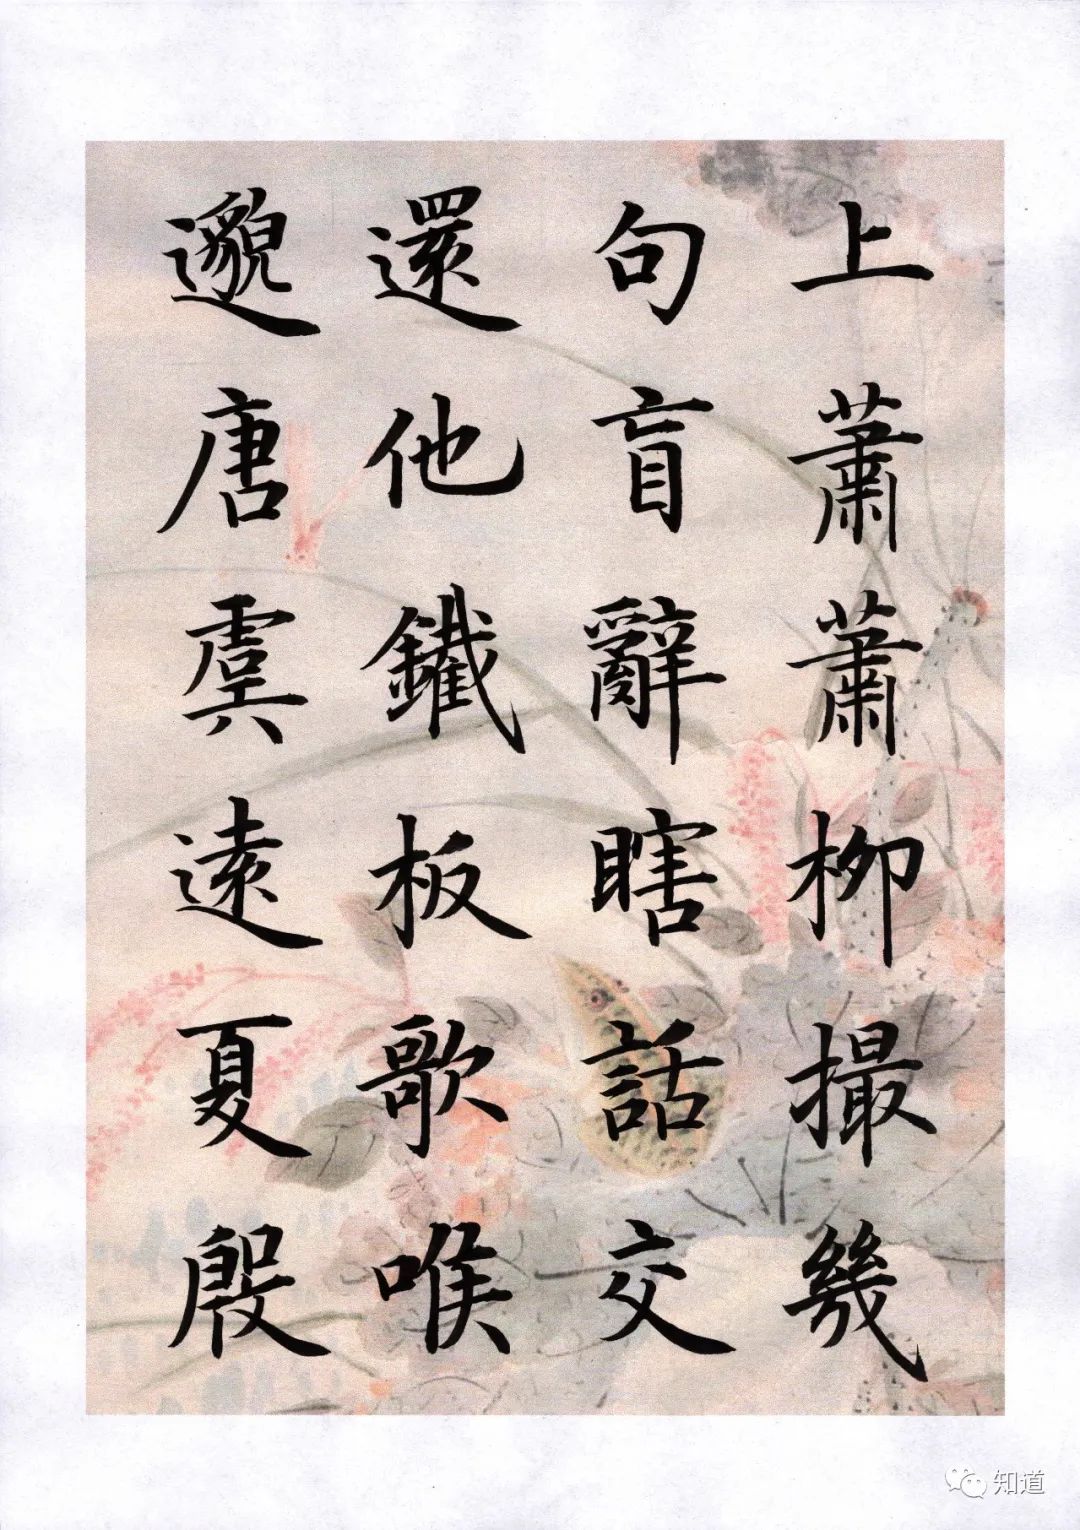 上蕭蕭柳撮幾
句盲辭瞎話交
還他鐵板歌喉
邈唐虞遠夏殷
知道